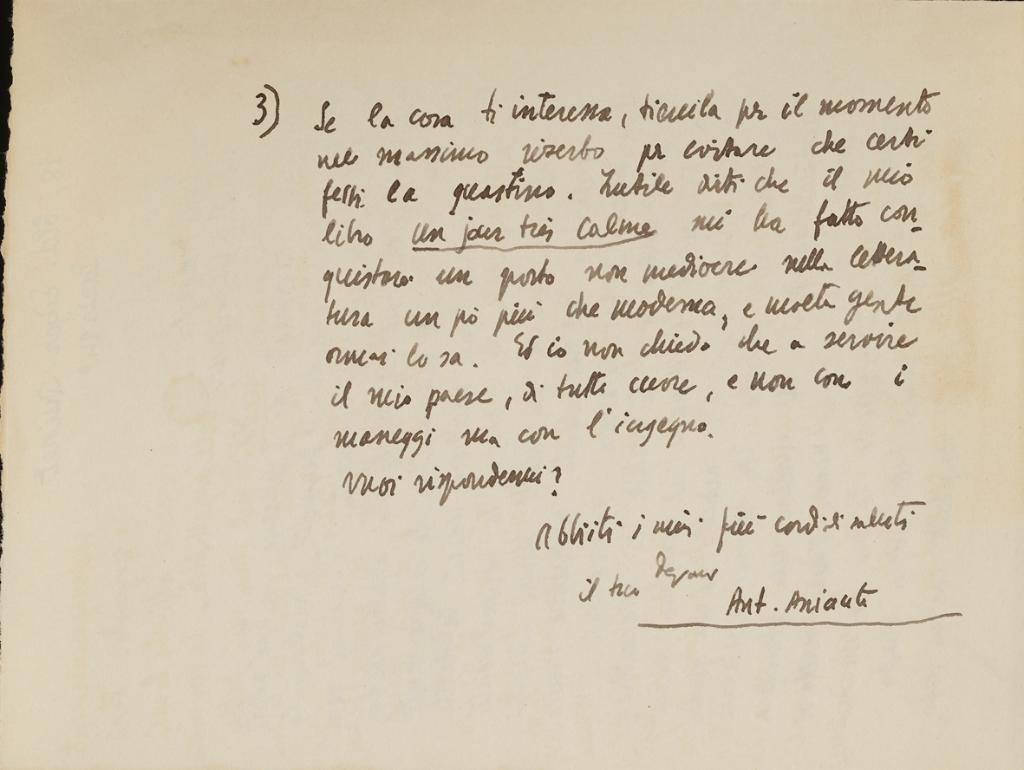 3) Se la cosa ti interessa, tienila pr il momento
nel massimo riserbo pr evitare che certi
fessi la guastino. Inutile dirti che il mio
libro un jour très calme mi ha fatto con-
quistare un posto non mediocre nella lettera-
tura un pò più che moderna, e molta gente
ormai lo sa. Ed io non chiedo che a servire
il mio paese, di tutto cuore, e non con i
maneggi ma con l'ingegno.
Vuoi rispondermi?
Abbiti i miei più cordiali saluti
il tuo
Ant. Aniante